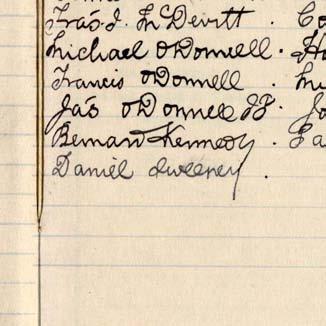 Fras. J. McDevitt . Co
Michael O'Donnell . Ho
Francis O'Donnell .
Jas O'Donnell JP Jo
Bernard Kennedy .
Daniel Sweeney .